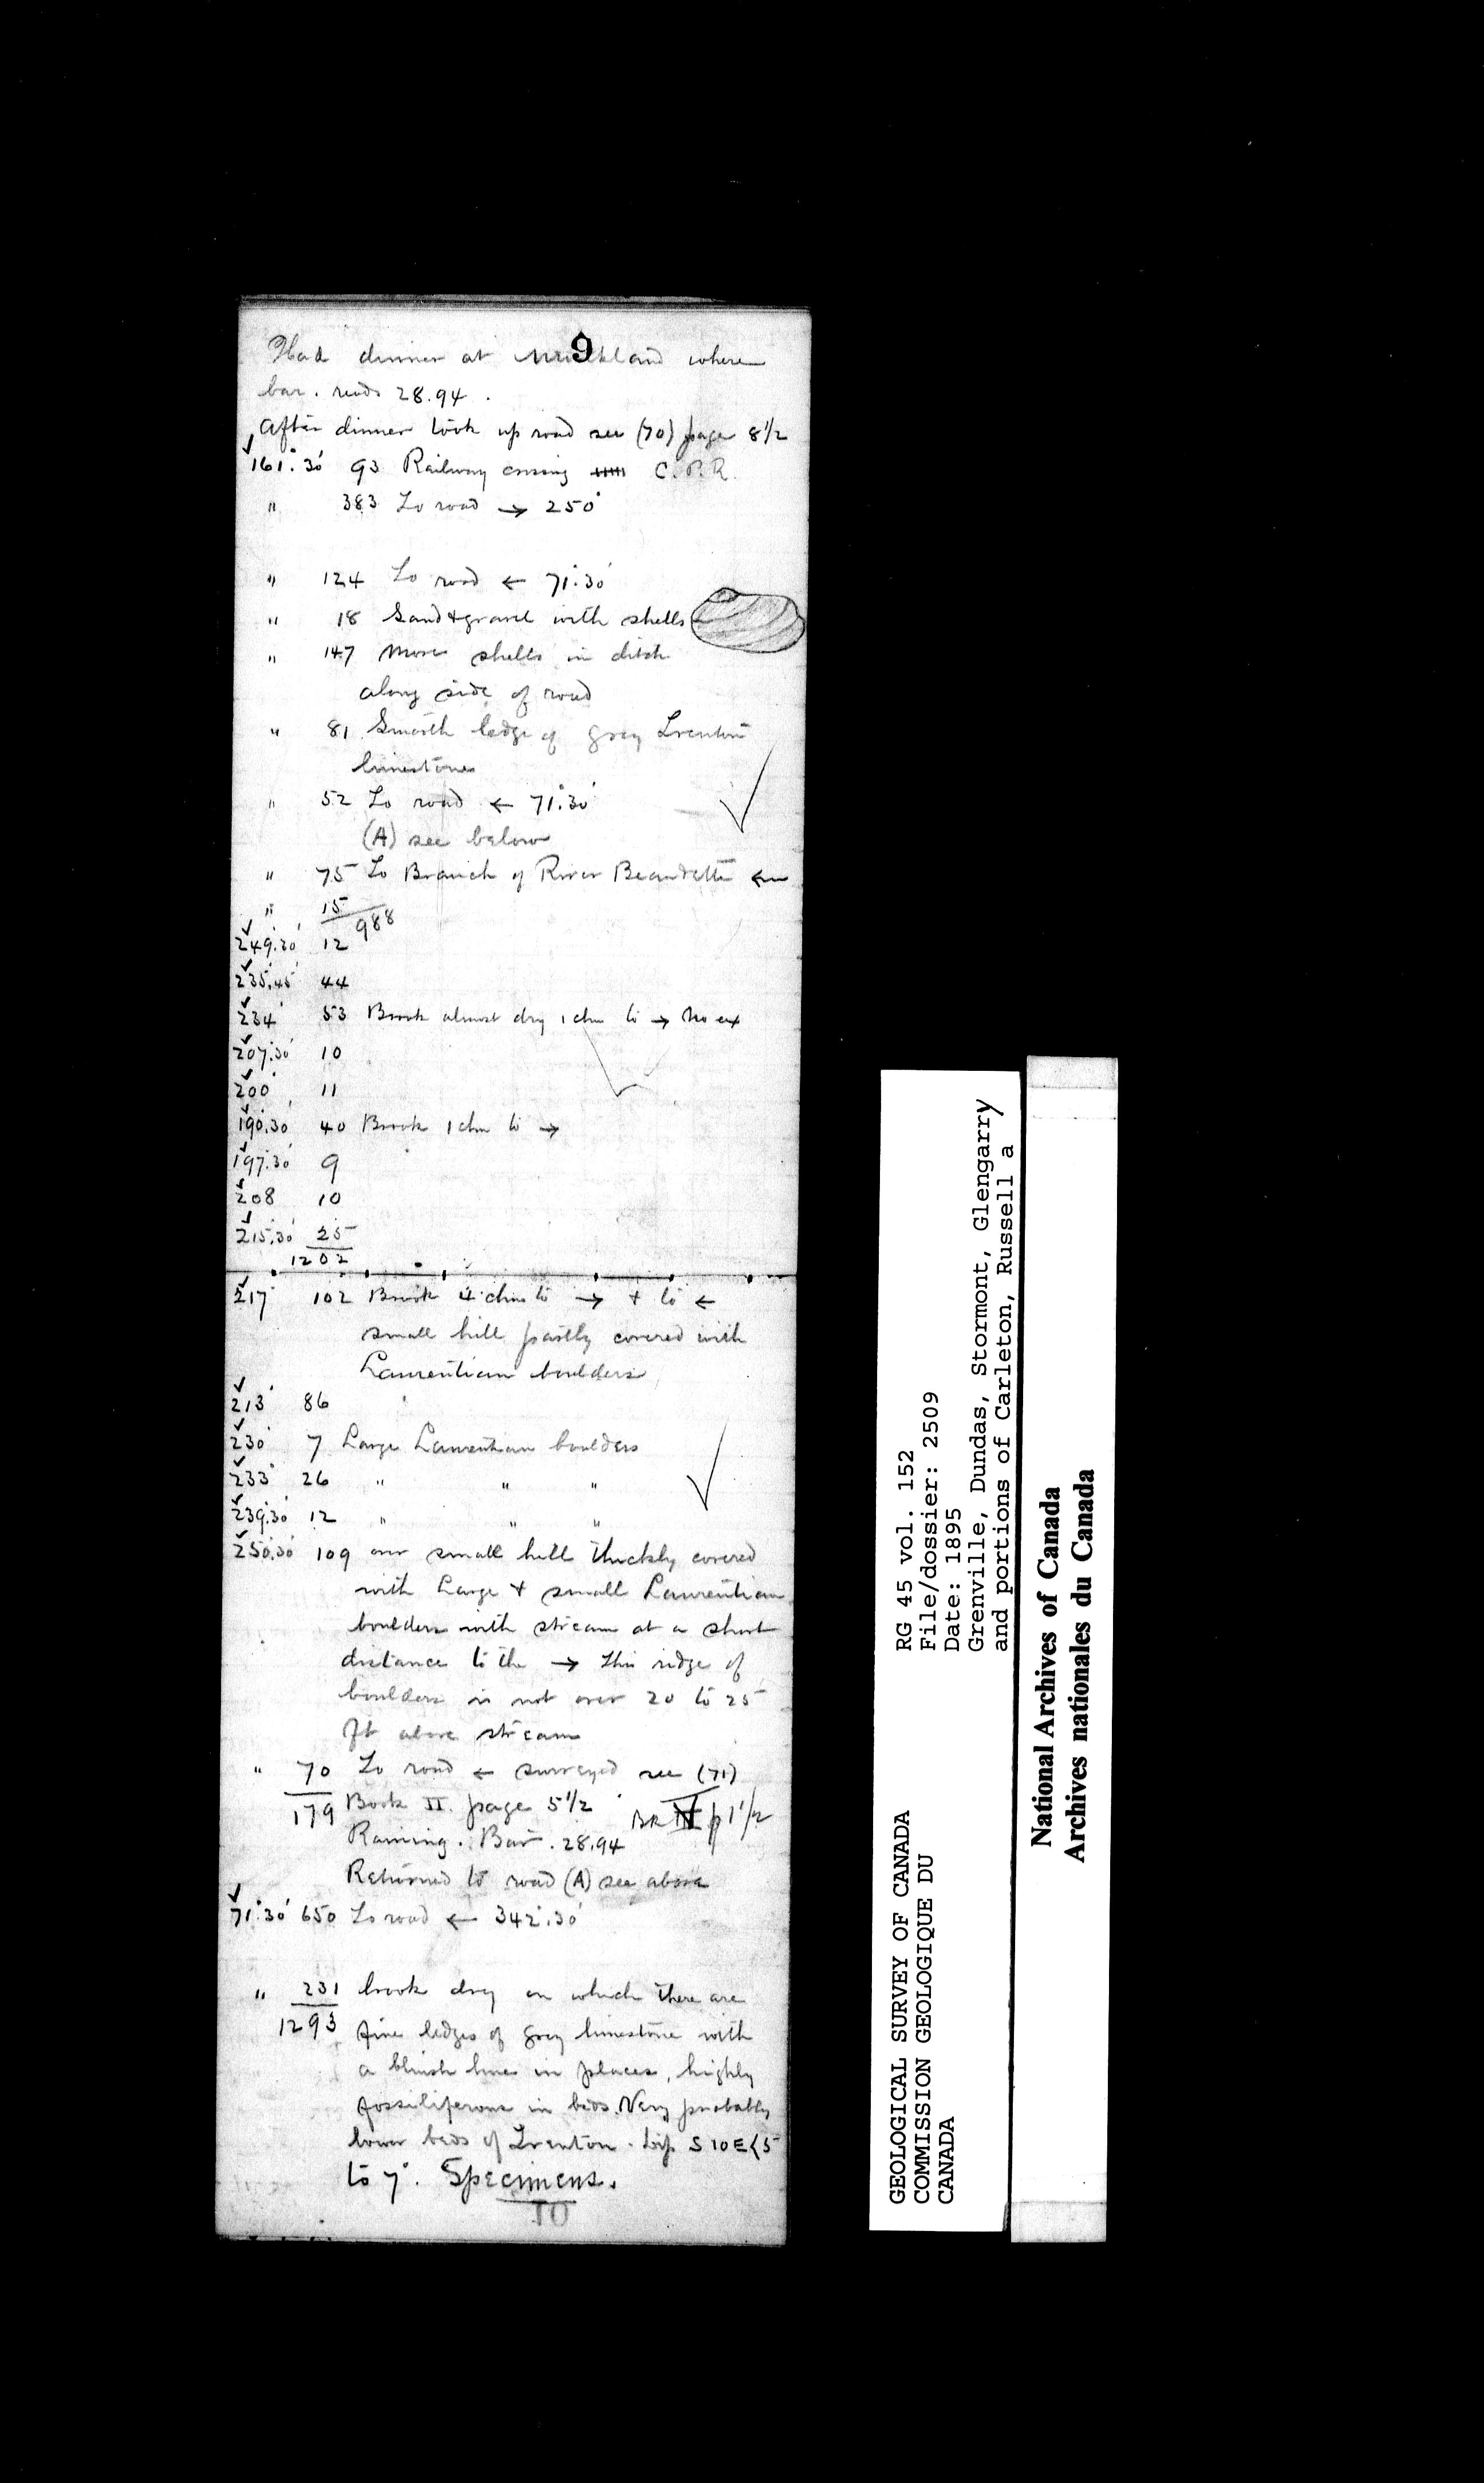 9
Had dinner at where
bar. reads 28.94.
After dinner took up road see (70) page 8 1/2
161°.30' 93 Railway crossing C.P.R.
" 383 To road → 250°
" 124 To road ← 71°.30'
" 18 Sand & gravel with shells
" 147 More shells in ditch
along side of road
" 81 Smooth ledge of grey Trenton
limestone
" 52 To road ← 71°.30'
(A) see below
" 75 To Branch of River Beaudette ←
" 15
988
249°.30' 12
235°.45' 44
234° 53 Brook almost dry 1 chn to → No ex
207°.30' 10
200° 11
190°.30' 40 Brook 1 chn to →
197°.30' 9
208 10
215°.30' 25
1202
217° 102 Brook 4 chns to → & to ←
small hill partly covered with
Laurentian boulders
213° 86
230° 7 Large Laurentian boulders
233° 26 " " "
239°.30' 12 " " "
250°.30' 109 over small hill thickly covered
with Large & small Laurentian
boulders with stream at a short
distance to the → This ridge of
boulders is not over 20 to 25
ft above stream
" 70 To road ← surveyed see (71)
179 Book II. page 5 1/2 p 1 1/2
Raining. Bar. 28.94
Returned to road (A) see above
71°.30' 650 To road ← 342°.30'
" 231 brook dry on which there are
1293 fine ledges of grey limestone with
a bluish hue in places, highly
fossiliferous in beds. Very probably
lower beds of Trenton. Dip S 10 E < 5
to 7°. Specimens.
10
GEOLOGICAL SURVEY OF CANADA
COMMISSION GEOLOGIQUE DU
CANADA
RG 45 vol. 152
File/dossier: 2509
Date: 1895
Grenville, Dundas, Stormont, Glengarry
and portions of Carleton, Russell a
National Archives of Canada
Archives nationales du Canada